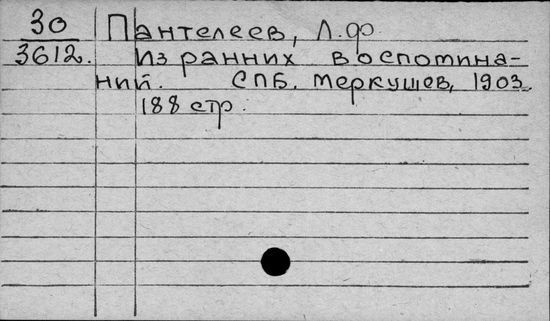 30 Пантелеев, Л.Ф.
3612. Из ранних воспомина-
ний. СПБ. Меркушев, 1903.
188 стр.